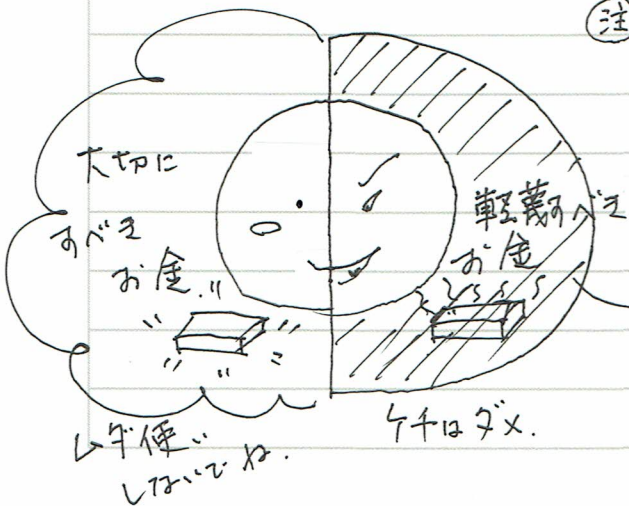 注
大切に
すべき
お金
軽蔑すべき
お金
ムダ使い
しないでね.
ケチはダメ.